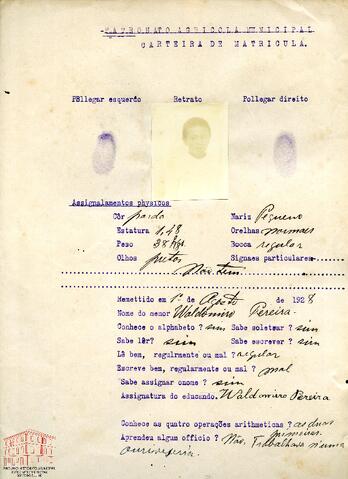 -PATRONATO AGRICOLA MUNICIPAL
CARTEIRA DE MATRICULA.
Pöllegar esquerdo Retrato Pollegar direito
Assignalamentos physicos
Côr parda Nariz Pequeno
Estatura 1,48 Orelhas normaes
Peso 38 kgs. Bocca regular
Olhos pretos Signaes particulares
Não tem
Remettido em 1º de Agosto de 1928
Nome do menor Waldomiro Pereira.
Conhece o alphabeto ? sim Sabe soletrar ? sim
Sabe lêr? sim Sabe escrever ? sim
Lê bem, regulrmente ou mal ? regular
Escreve bem, regularmente ou mal ? mal
Sabe assignar onome ? sim
Assignatura do educando. Waldomiro Pereira
Conhece as quatro operações arithmeticas ? as duas primeiras
Aprendeu algum officio ? Não. Trabalhava n'uma
ourivesaria.